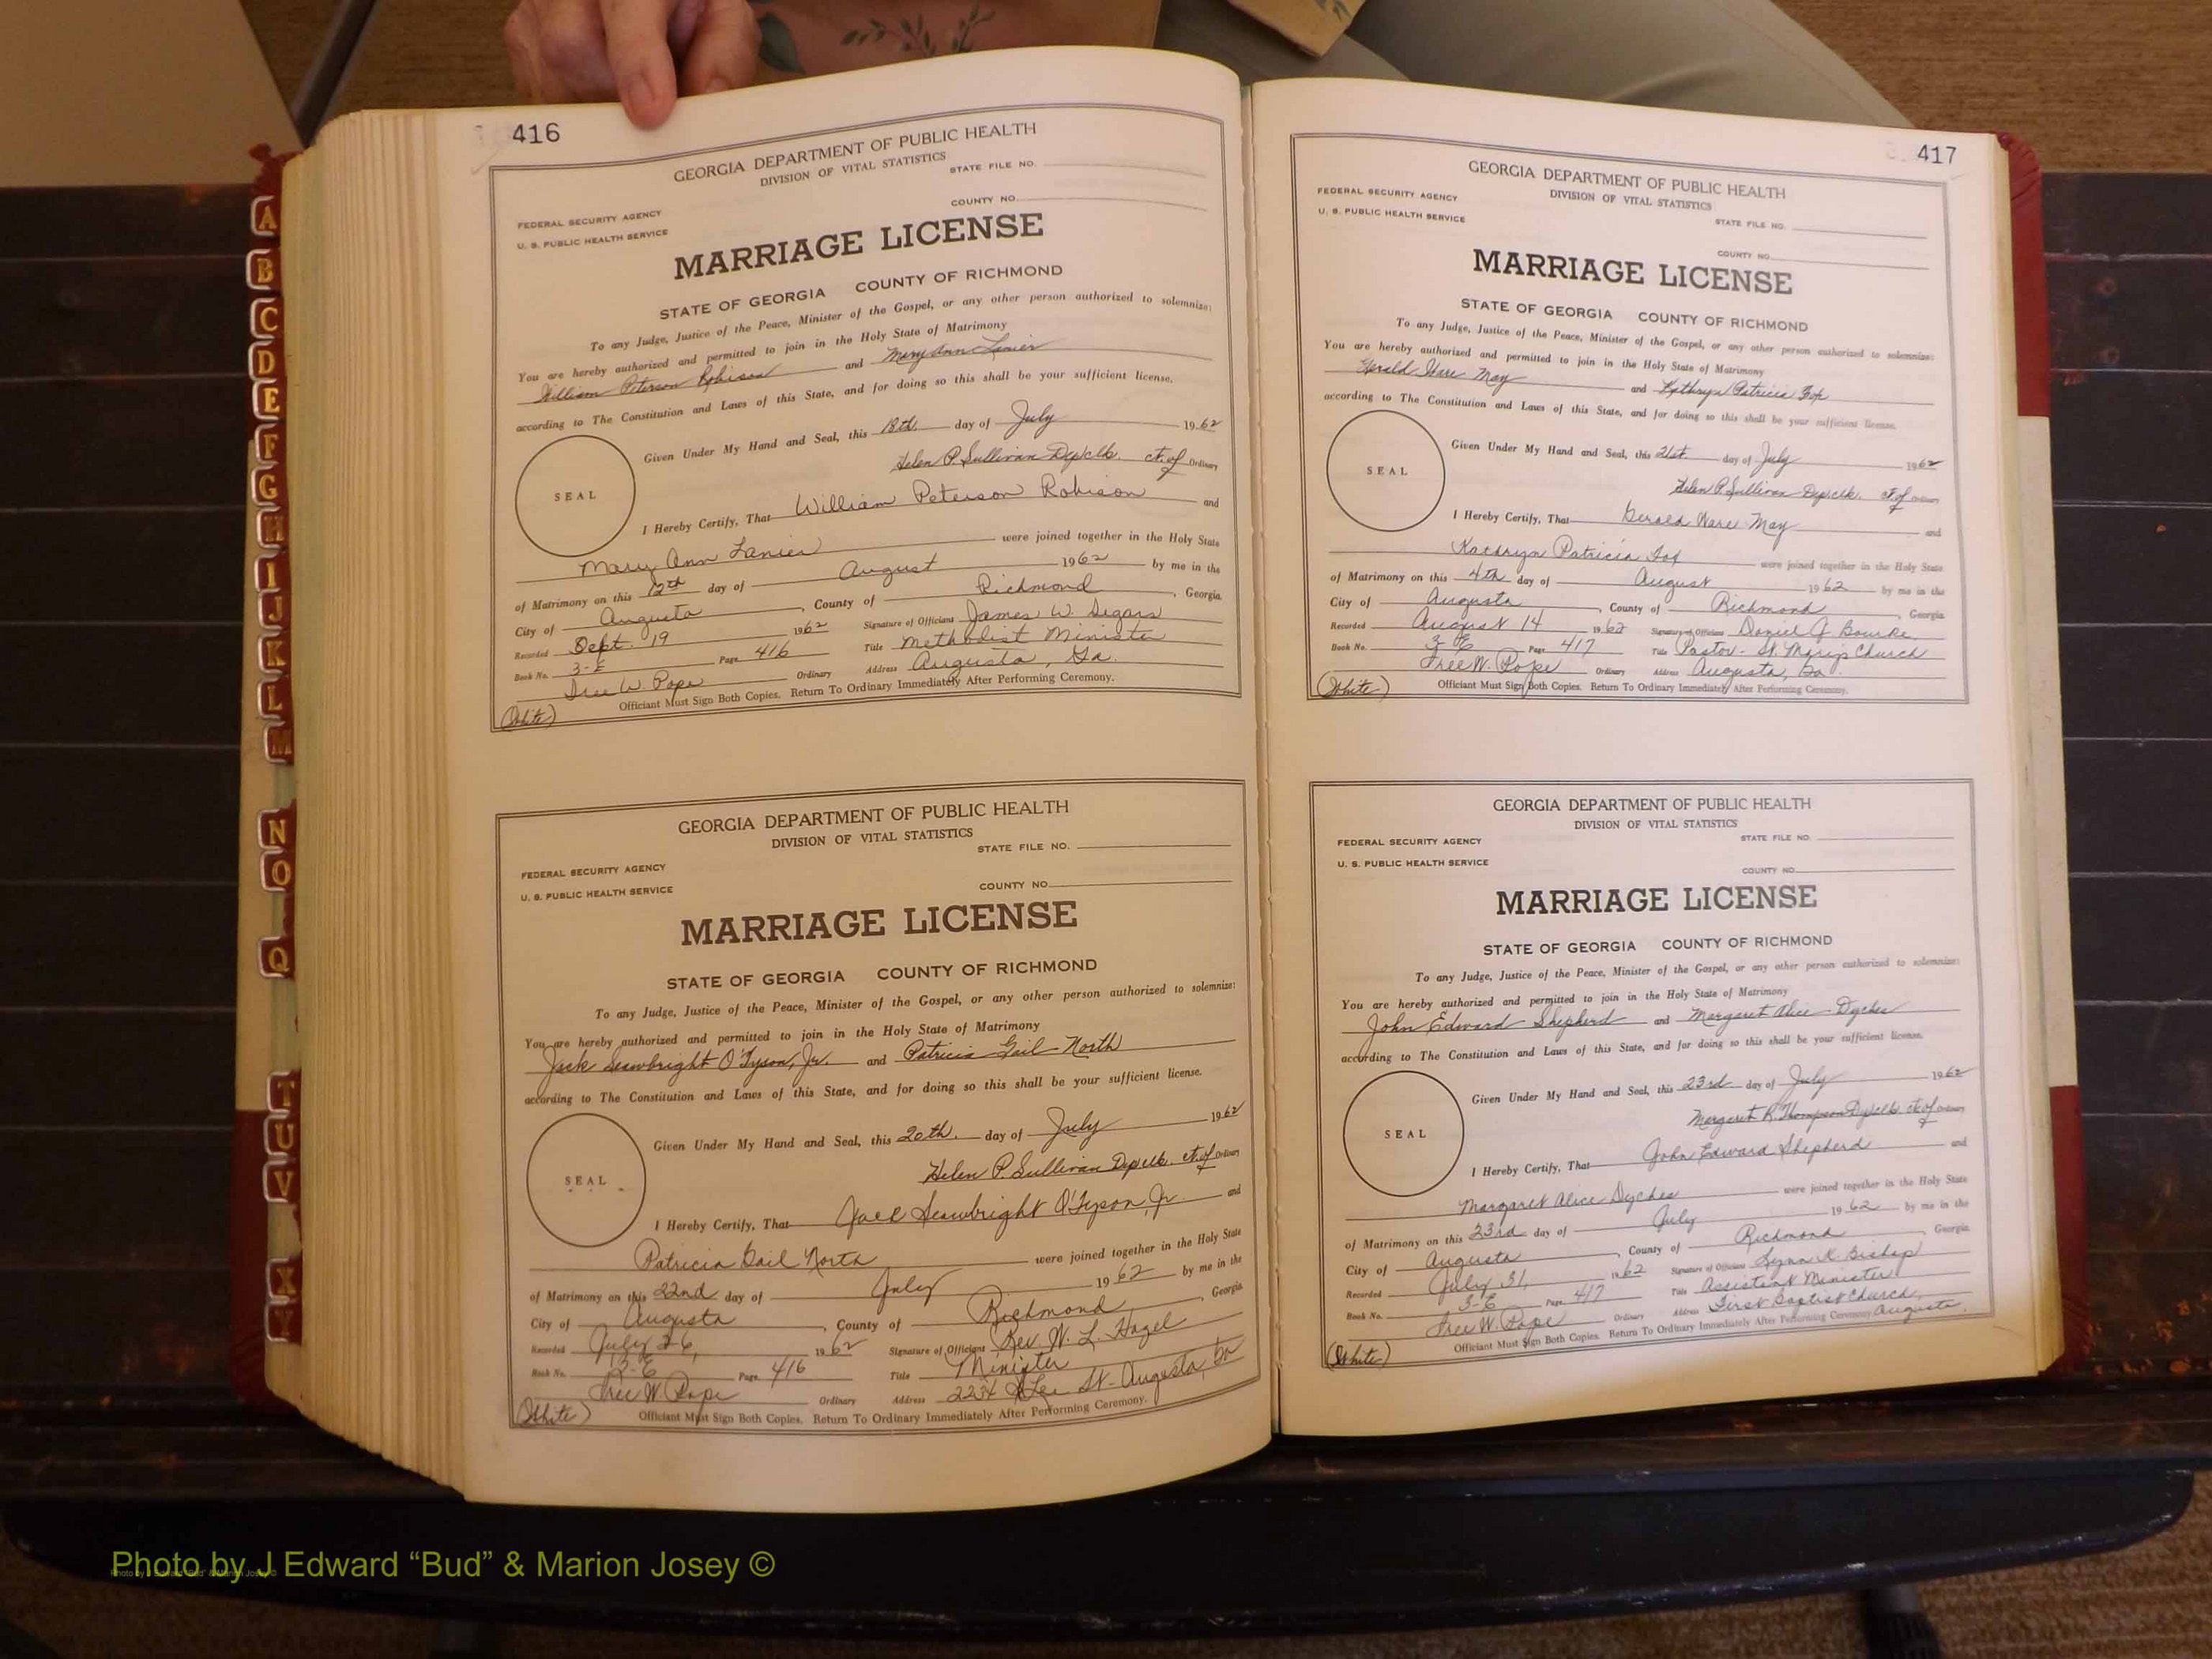 416
GEORGIA DEPARTMENT OF PUBLIC HEALTH
DIVISION OF VITAL STATISTICS
STATE FILE NO.
FEDERAL SECURITY AGENCY
U. S. PUBLIC HEALTH SERVICE
COUNTY NO.
MARRIAGE LICENSE
STATE OF GEORGIA COUNTY OF RICHMOND
To any Judge, Justice of the Peace, Minister of the Gospel, or any other person authorized to solemnize:
You are hereby authorized and permitted to join in the Holy State of Matrimony
William Peterson Robison and Mary Ann Lanier
according to The Constitution and Laws of this State, and for doing so this shall be your sufficient license.
Given Under My Hand and Seal, this 18th. day of July 1962
Helen P. Sullivan Dep.clk. ct. of Ordinary
SEAL
I Hereby Certify, That William Peterson Robison and
Mary Ann Lanier were joined together in the Holy State
of Matrimony on this 12th day of August 1962 by me in the
City of Augusta, County of Richmond, Georgia.
Recorded Sept. 19 1962 Signature of Officiant James W. Segars
Book No. 3-E Page 416 Title Methodist Minister
Free W. Pope Ordinary Address Augusta, Ga.
Officiant Must Sign Both Copies. Return To Ordinary Immediately After Performing Ceremony.
(White)
GEORGIA DEPARTMENT OF PUBLIC HEALTH
DIVISION OF VITAL STATISTICS
STATE FILE NO.
FEDERAL SECURITY AGENCY
U. S. PUBLIC HEALTH SERVICE
COUNTY NO.
MARRIAGE LICENSE
STATE OF GEORGIA COUNTY OF RICHMOND
To any Judge, Justice of the Peace, Minister of the Gospel, or any other person authorized to solemnize:
You are hereby authorized and permitted to join in the Holy State of Matrimony
Jack Seawbright O'Tyson, Jr. and Patricia Gail North
according to The Constitution and Laws of this State, and for doing so this shall be your sufficient license.
Given Under My Hand and Seal, this 20th. day of July 1962
Helen P. Sullivan Dep clk. ct. of Ordinary
SEAL
I Hereby Certify, That Jack Seawbright O'Tyson, Jr. and
Patricia Gail North were joined together in the Holy State
of Matrimony on this 22nd day of July 1962 by me in the
City of Augusta, County of Richmond, Georgia.
Recorded July 26, 1962 Signature of Officiant Rev. W. L. Hagel
Book No. 3-E Page 416 Title Minister
Free W. Pope Ordinary Address St- Augusta, Ga
Officiant Must Sign Both Copies. Return To Ordinary Immediately After Performing Ceremony.
(White)
417
GEORGIA DEPARTMENT OF PUBLIC HEALTH
DIVISION OF VITAL STATISTICS
FEDERAL SECURITY AGENCY
U. S. PUBLIC HEALTH SERVICE
STATE FILE NO.
COUNTY NO.
MARRIAGE LICENSE
STATE OF GEORGIA COUNTY OF RICHMOND
To any Judge, Justice of the Peace, Minister of the Gospel, or any other person authorized to solemnize:
You are hereby authorized and permitted to join in the Holy State of Matrimony
Gerald Ware May and Kathryn Patricia Fox
according to The Constitution and Laws of this State, and for doing so this shall be your sufficient license.
Given Under My Hand and Seal, this 21st. day of July 1962
Helen P. Sullivan Dep.clk. ct. of Ordinary
SEAL
I Hereby Certify, That Gerald Ware May and
Kathryn Patricia Fox were joined together in the Holy State
of Matrimony on this 4th day of August 1962 by me in the
City of Augusta, County of Richmond, Georgia.
Recorded August 14 1962 Signature of Officiant Daniel J. Bourke
Book No. 3-E Page 417 Title Pastor - St. Mary's Church
Free W. Pope Ordinary Address Augusta, Ga.
Officiant Must Sign Both Copies. Return To Ordinary Immediately After Performing Ceremony.
(White)
GEORGIA DEPARTMENT OF PUBLIC HEALTH
DIVISION OF VITAL STATISTICS
FEDERAL SECURITY AGENCY
STATE FILE NO.
U. S. PUBLIC HEALTH SERVICE
COUNTY NO.
MARRIAGE LICENSE
STATE OF GEORGIA COUNTY OF RICHMOND
To any Judge, Justice of the Peace, Minister of the Gospel, or any other person authorized to solemnize:
You are hereby authorized and permitted to join in the Holy State of Matrimony
John Edward Shepherd and Margaret Alice Dyches
according to The Constitution and Laws of this State, and for doing so this shall be your sufficient license.
Given Under My Hand and Seal, this 23rd day of July 1962
Margaret R. Thompson Dy.clk. ct. of Ordinary
SEAL
I Hereby Certify, That John Edward Shepherd and
Margaret Alice Dyches were joined together in the Holy State
of Matrimony on this 23rd day of July 1962 by me in the
City of Augusta, County of Richmond Georgia.
Recorded July 31, 1962 Signature of Officiant Lynn K. Bishop
Book No. 3-E Page 417 Title Assistant Minister
Free W. Pope Ordinary Address First Baptist Church, Augusta.
Officiant Must Sign Both Copies. Return To Ordinary Immediately After Performing Ceremony.
(White)
A
B
C
D
E
F
G
H
I
J
K
L
M
N
O
Q
T
U
V
X
Y
Photo by J Edward “Bud” & Marion Josey ©
Photo by J Edward "Bud" & Marion Josey ©